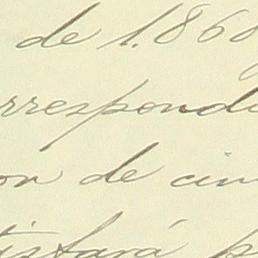 de 1.860
rrespondi
on de cin
tisfará p